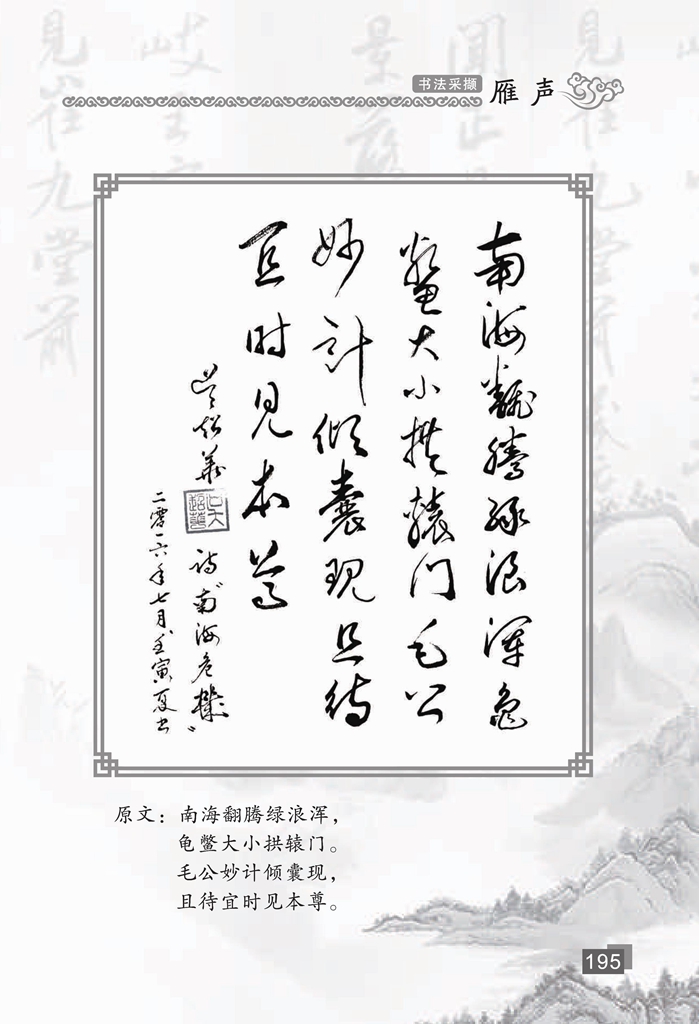 书法采撷
雁声
南海翻腾绿浪浑龟
鳖大小拱辕门毛公
妙计倾囊现且待
宜时见本尊
诗"南海危机"
二零一六年七月壬寅夏书
原文：南海翻腾绿浪浑，
龟鳖大小拱辕门。
毛公妙计倾囊现，
且待宜时见本尊。
195